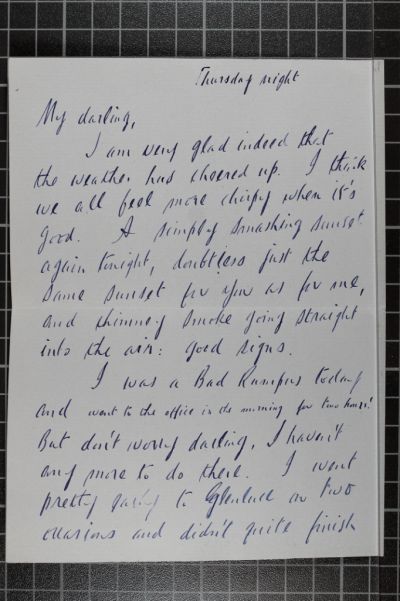 Thursday night
My darling,
I am very glad indeed that
the weather has cheered up. I think
we all feel more chirpy when it's
good. A simply smashing sunset
again tonight, doubtless just the
same sunset for you as for me,
and chimney smoke going straight
into the air: good signs.
I was a Bad Rumpus today
and went to the office in the morning for two hours!
But don't worry darling, I haven't
any more to do there. I went
pretty to Glenluce on two
occasions and didn't quite finish